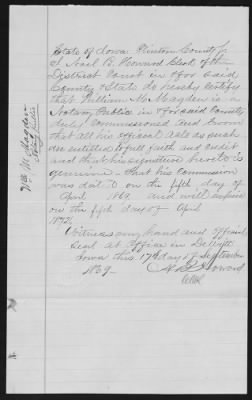 State of Iowa Clinton County ss
I Noel B. Howard Clerk of the
District Court in & for said
County & State do hereby certify
that William M. Magden is a
Notary Public in & for said County
duly Commissioned and Sworn
that all his official acts as such
are entitled to full faith and credit
and that his signature hereto is
genuine - that his Commission
was dated on the fifth day of
April 1869 and will expire
on the fifth day of April
1872.
Witness my hand and official
Seal at office in DeWitt
Iowa this 17th day of September
1869.
N. B. Howard
Clerk
Wm M. Magden
Notary Public